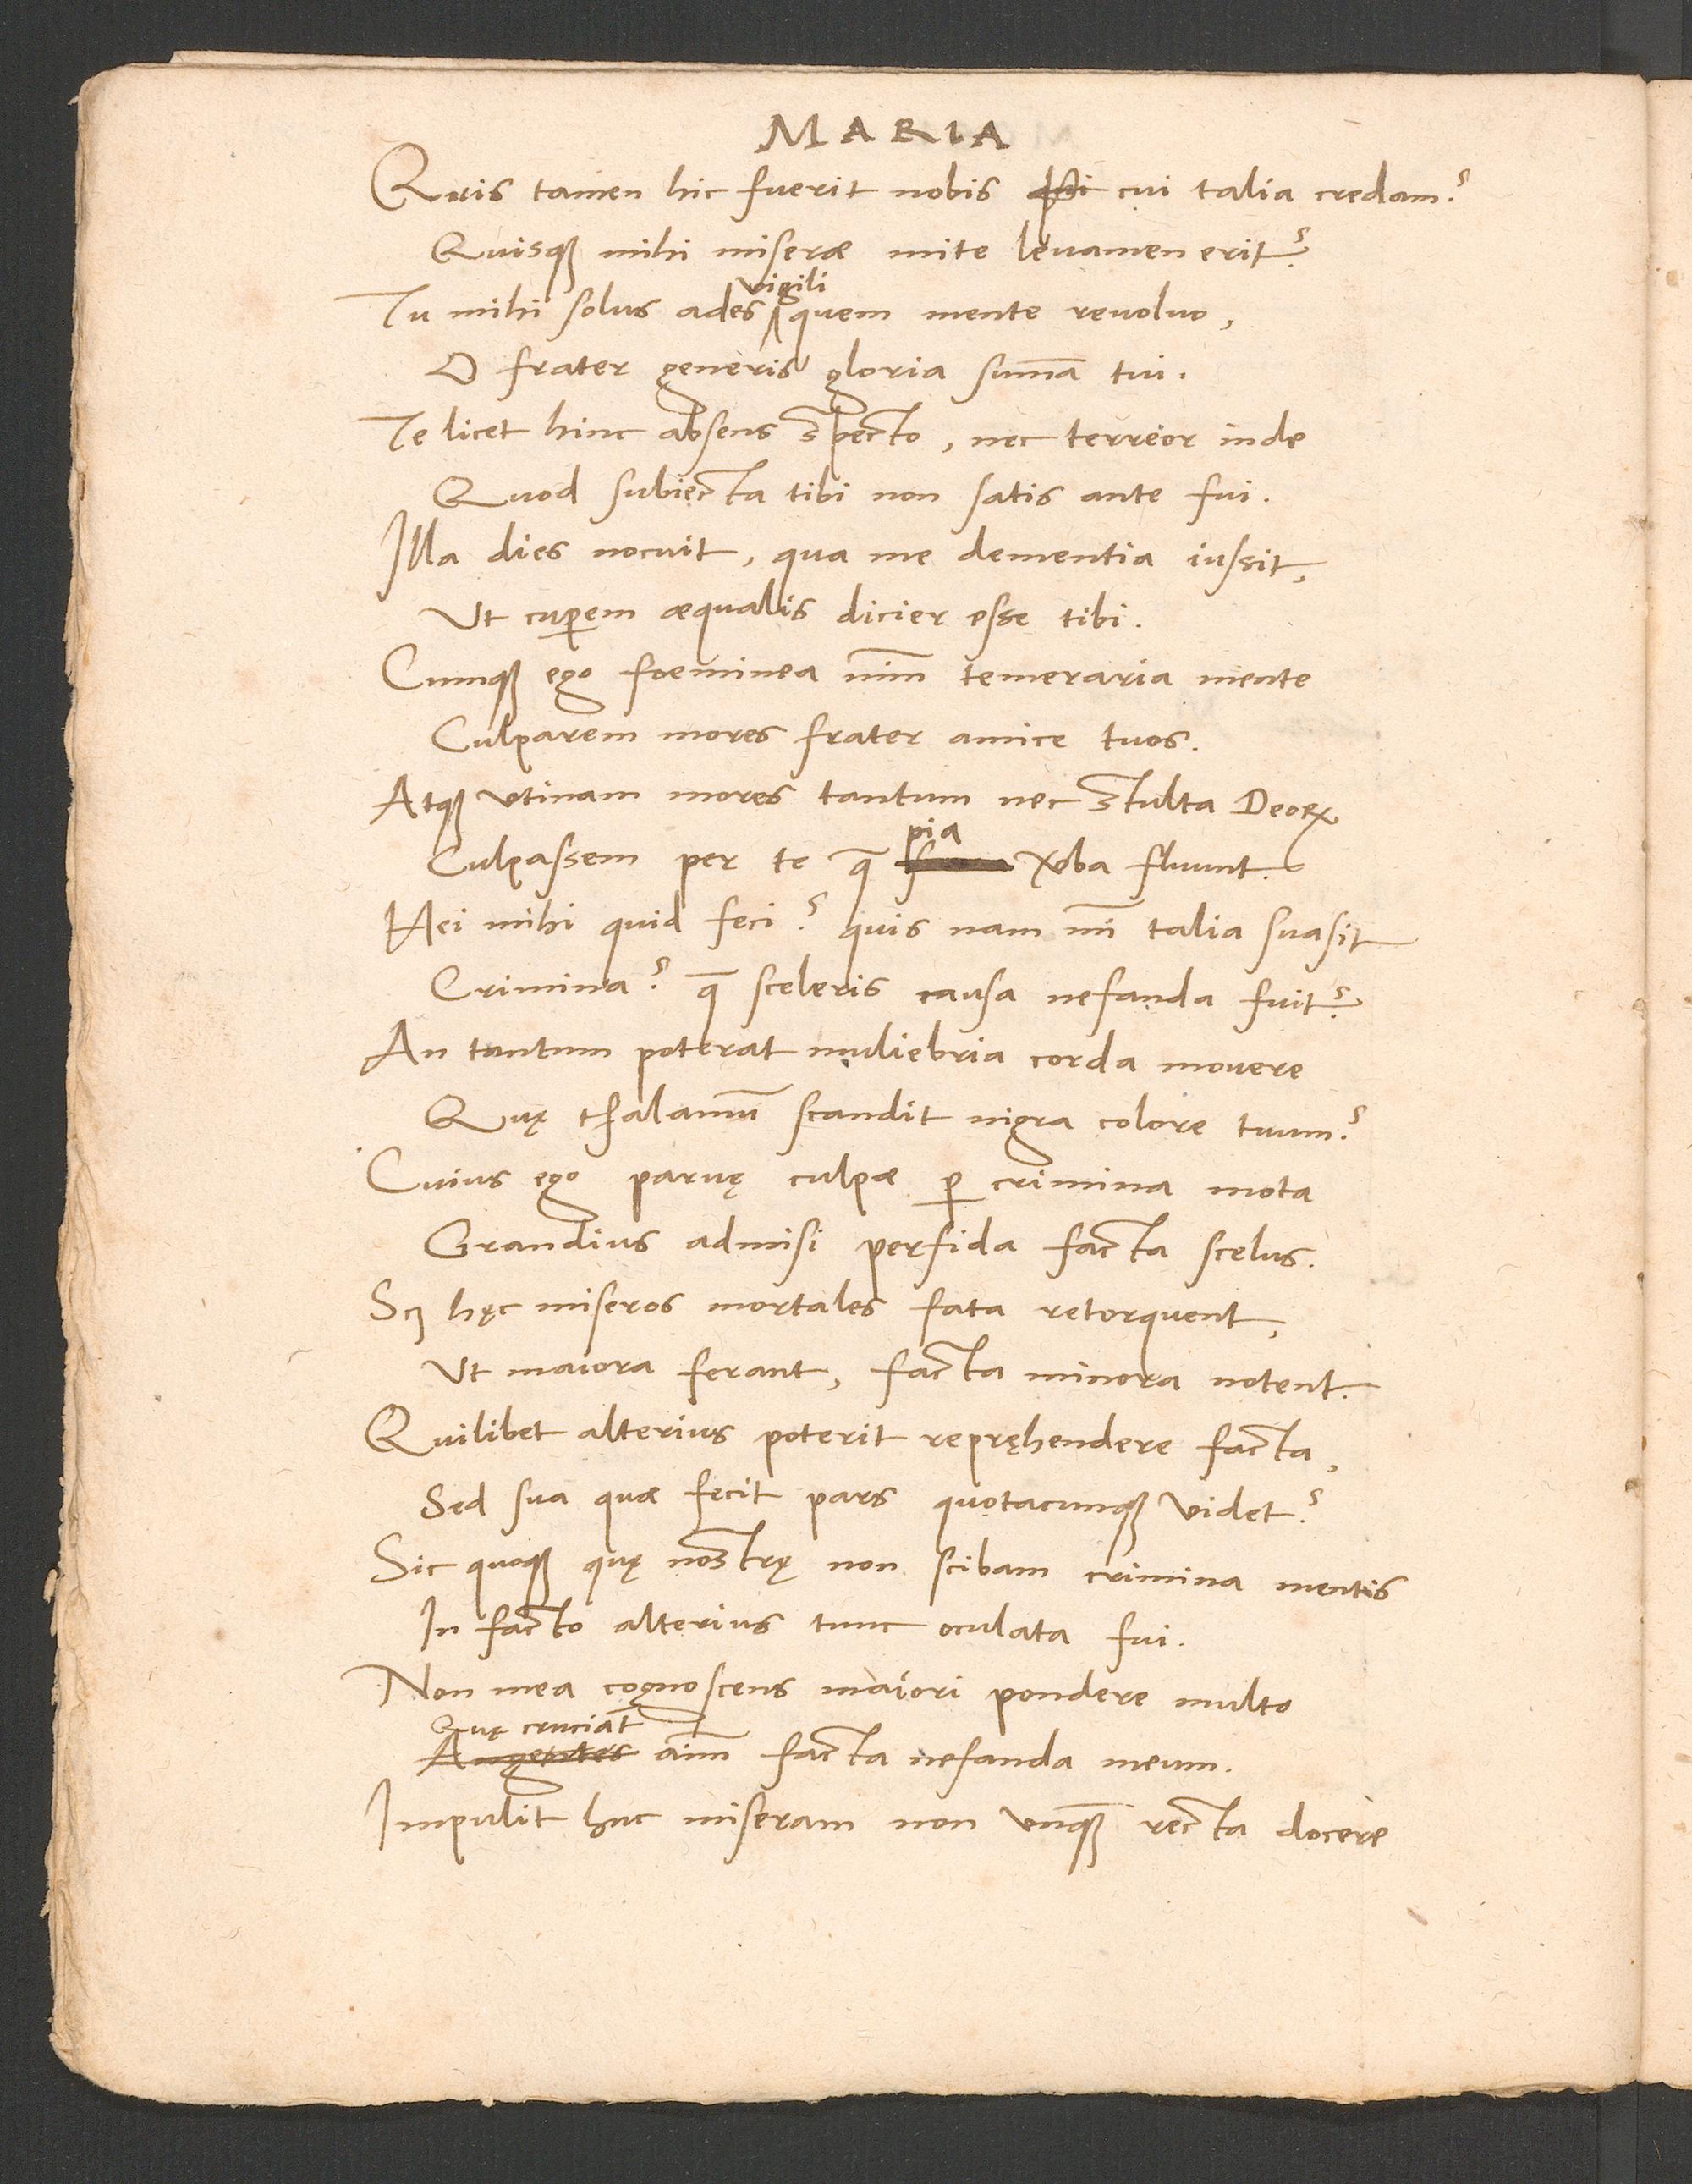 MARIA
Quis tamen hic fuerit nobis cui talia credam?
Quisq₃ mihi miseræ mite leuamen erit?
vigili
Tu mihi solus ades quem mente reuoluo,
O frater generis gloria sum̄a tui.
Te licet hinc absens specto, nec terreor inde
Quod subiecta tibi non satis ante fui.
Illa dies nocuit, qua me dementia iussit,
Ut cuꝑem æqualis dicier esse tibi.
Cumq₃ ego foeminea nim̄ temeraria mente
Culparem mores frater amice tuos.
Atq₃ vtinam mores tantum nec stulta Deoꝝ
pia
Culpassem per te q̄ v̄ba fluunt.
Hei mihi quid feci? quis nam mī talia suasit
Crimina? q̄ sceleris causa nefanda fuit?
An tantum poterat muliebria corda mouere
Quę thalamū scandit nigra colore tuum?
Cuius ego paruę culpæ ꝑ crimina mota
Grandius admisi perfida facta scelus.
Scȝ hęc miseros mortales fata retorquent,
Ut maiora ferant, facta minora notent.
Quilibet alterius poterit repręhendere facta,
Sed sua quæ fecit pars quotacumq₃ videt?
Sic quoq₃ quę nostrę non scibam crimina mentis
In facto alterius tunc oculata fui.
Non mea cognoscens maiori pondere multo
Quę cruciāt
Augentes aīm facta nefanda meum.
Impulit huc miseram non vnq̄₃ recta docere